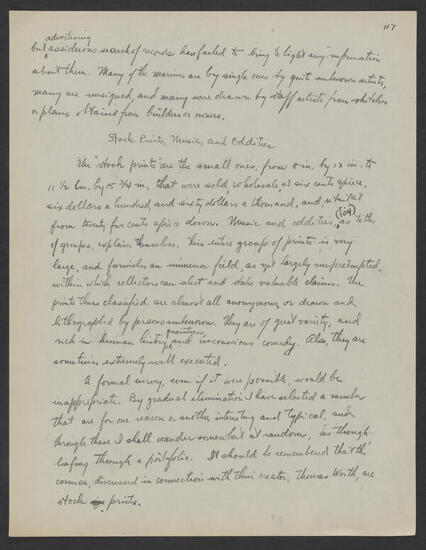 117
advertising
but assiderous search of records has failed to bring to light any information
about them. Many of the marines are by single ones by quite unknown artists,
many are unsigned, and many were drawn by staff artists from sketches
or plans obtained from builders or owners.
Stock Prints, Music, and Oddities
The "stock prints" are the small ones, from 8 in. by 12 in. to
11 1/2 in. by 15 3/4 in, that were sold, wholesale, at six cents apiece,
six dollars a hundred, and sixty dollars a thousand, and, retail at
from twenty-five cents apiece down. Music and oddities, as titles
of groups, explain themselves. This entire group of prints is very
large, and furnishes an immense field, as yet largely unpreempted,
within which collectors can elect and stake valuable claims. The
prints thus classified are almost all anonymous, or drawn and
lithographed by persons unknown. They are of great variety, and
quaintness,
rich in human history, and unconscious comedy. Also, they are
sometimes extremely well executed.
A formal survey, even if it were possible, would be
inappropriate. By gradual elimination I have selected a number
that are for one reason or another interesting and typical, and
through these I shall wander somewhat at random, as though
leafing through a portfolio. It should be remembered that the
comics, discussed in connection with their creator, Thomas Worth, are
stock prints.